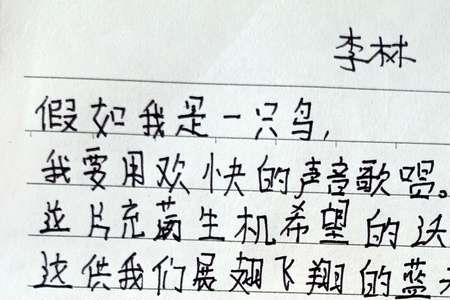 李林
假如我是一只鸟,
我要用欢快的声音歌唱。
这片充满生机希望的
这供我们展翅飞翔的蓝